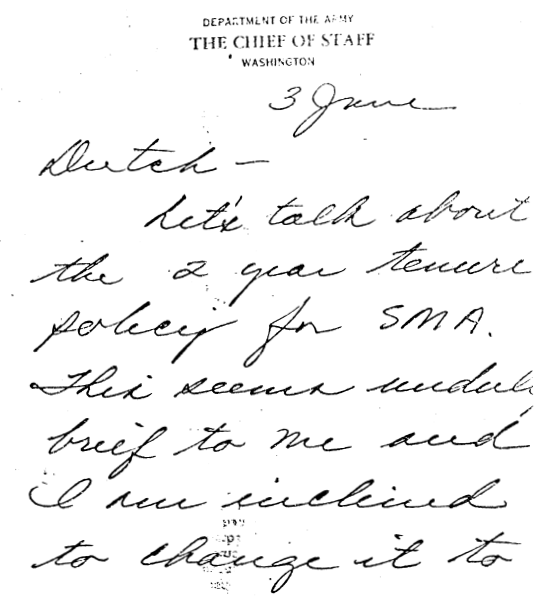 DEPARTMENT OF THE ARMY
THE CHIEF OF STAFF
WASHINGTON
3 June
Dutch —
Let's talk about
the 2 year tenure
policy for SMA.
This seems unduly
brief to me and
I am inclined
to change it to